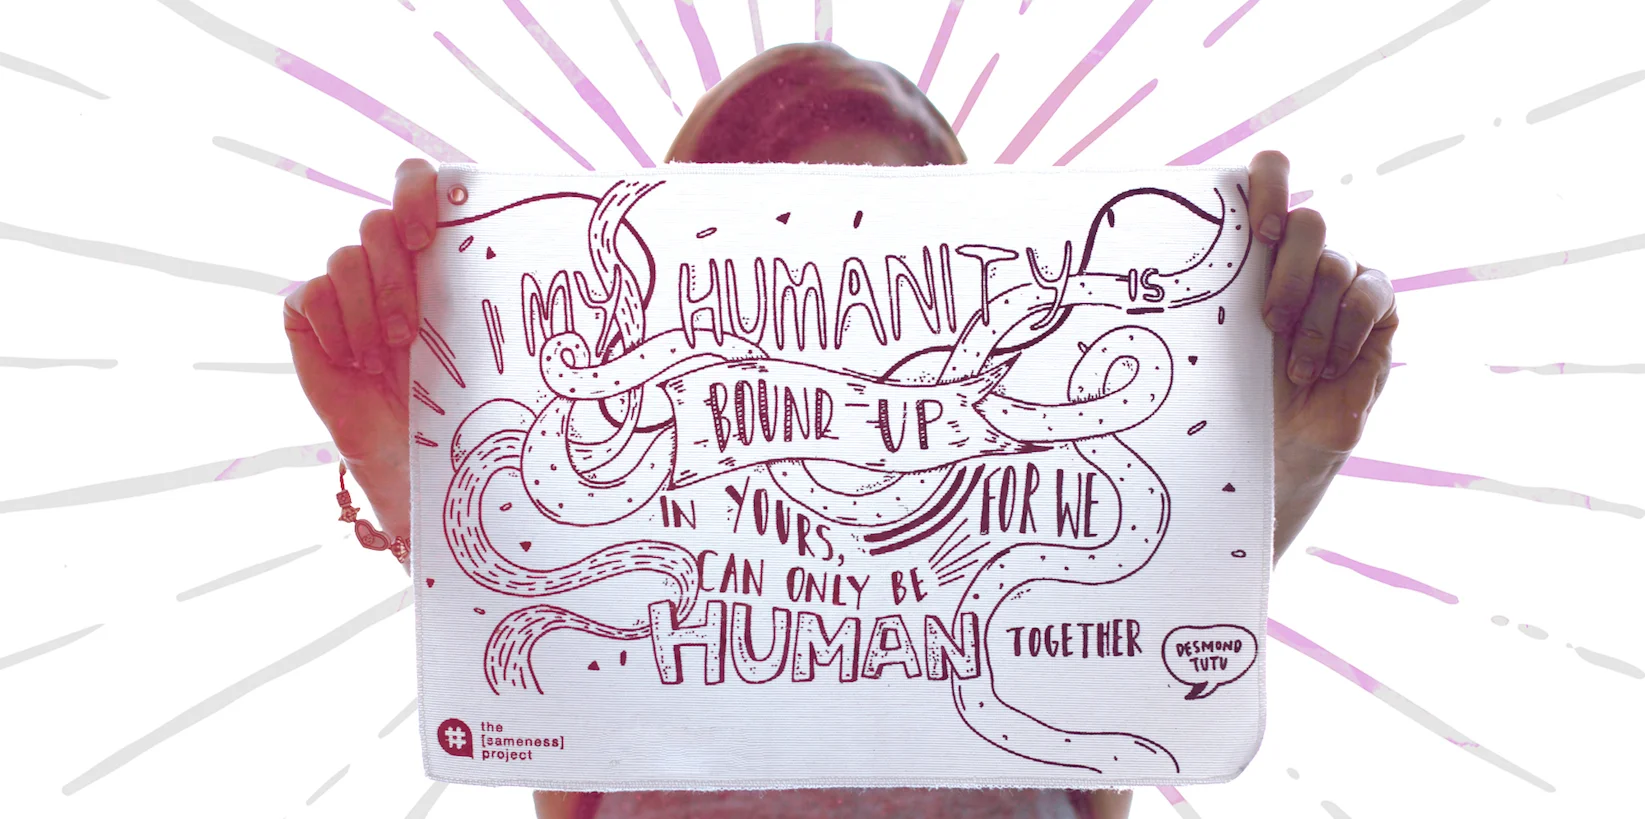 MY HUMANITY IS
BOUND-UP
IN YOURS, FOR WE
CAN ONLY BE
HUMAN TOGETHER
DESMOND
TUTU
#
the
[sameness]
project